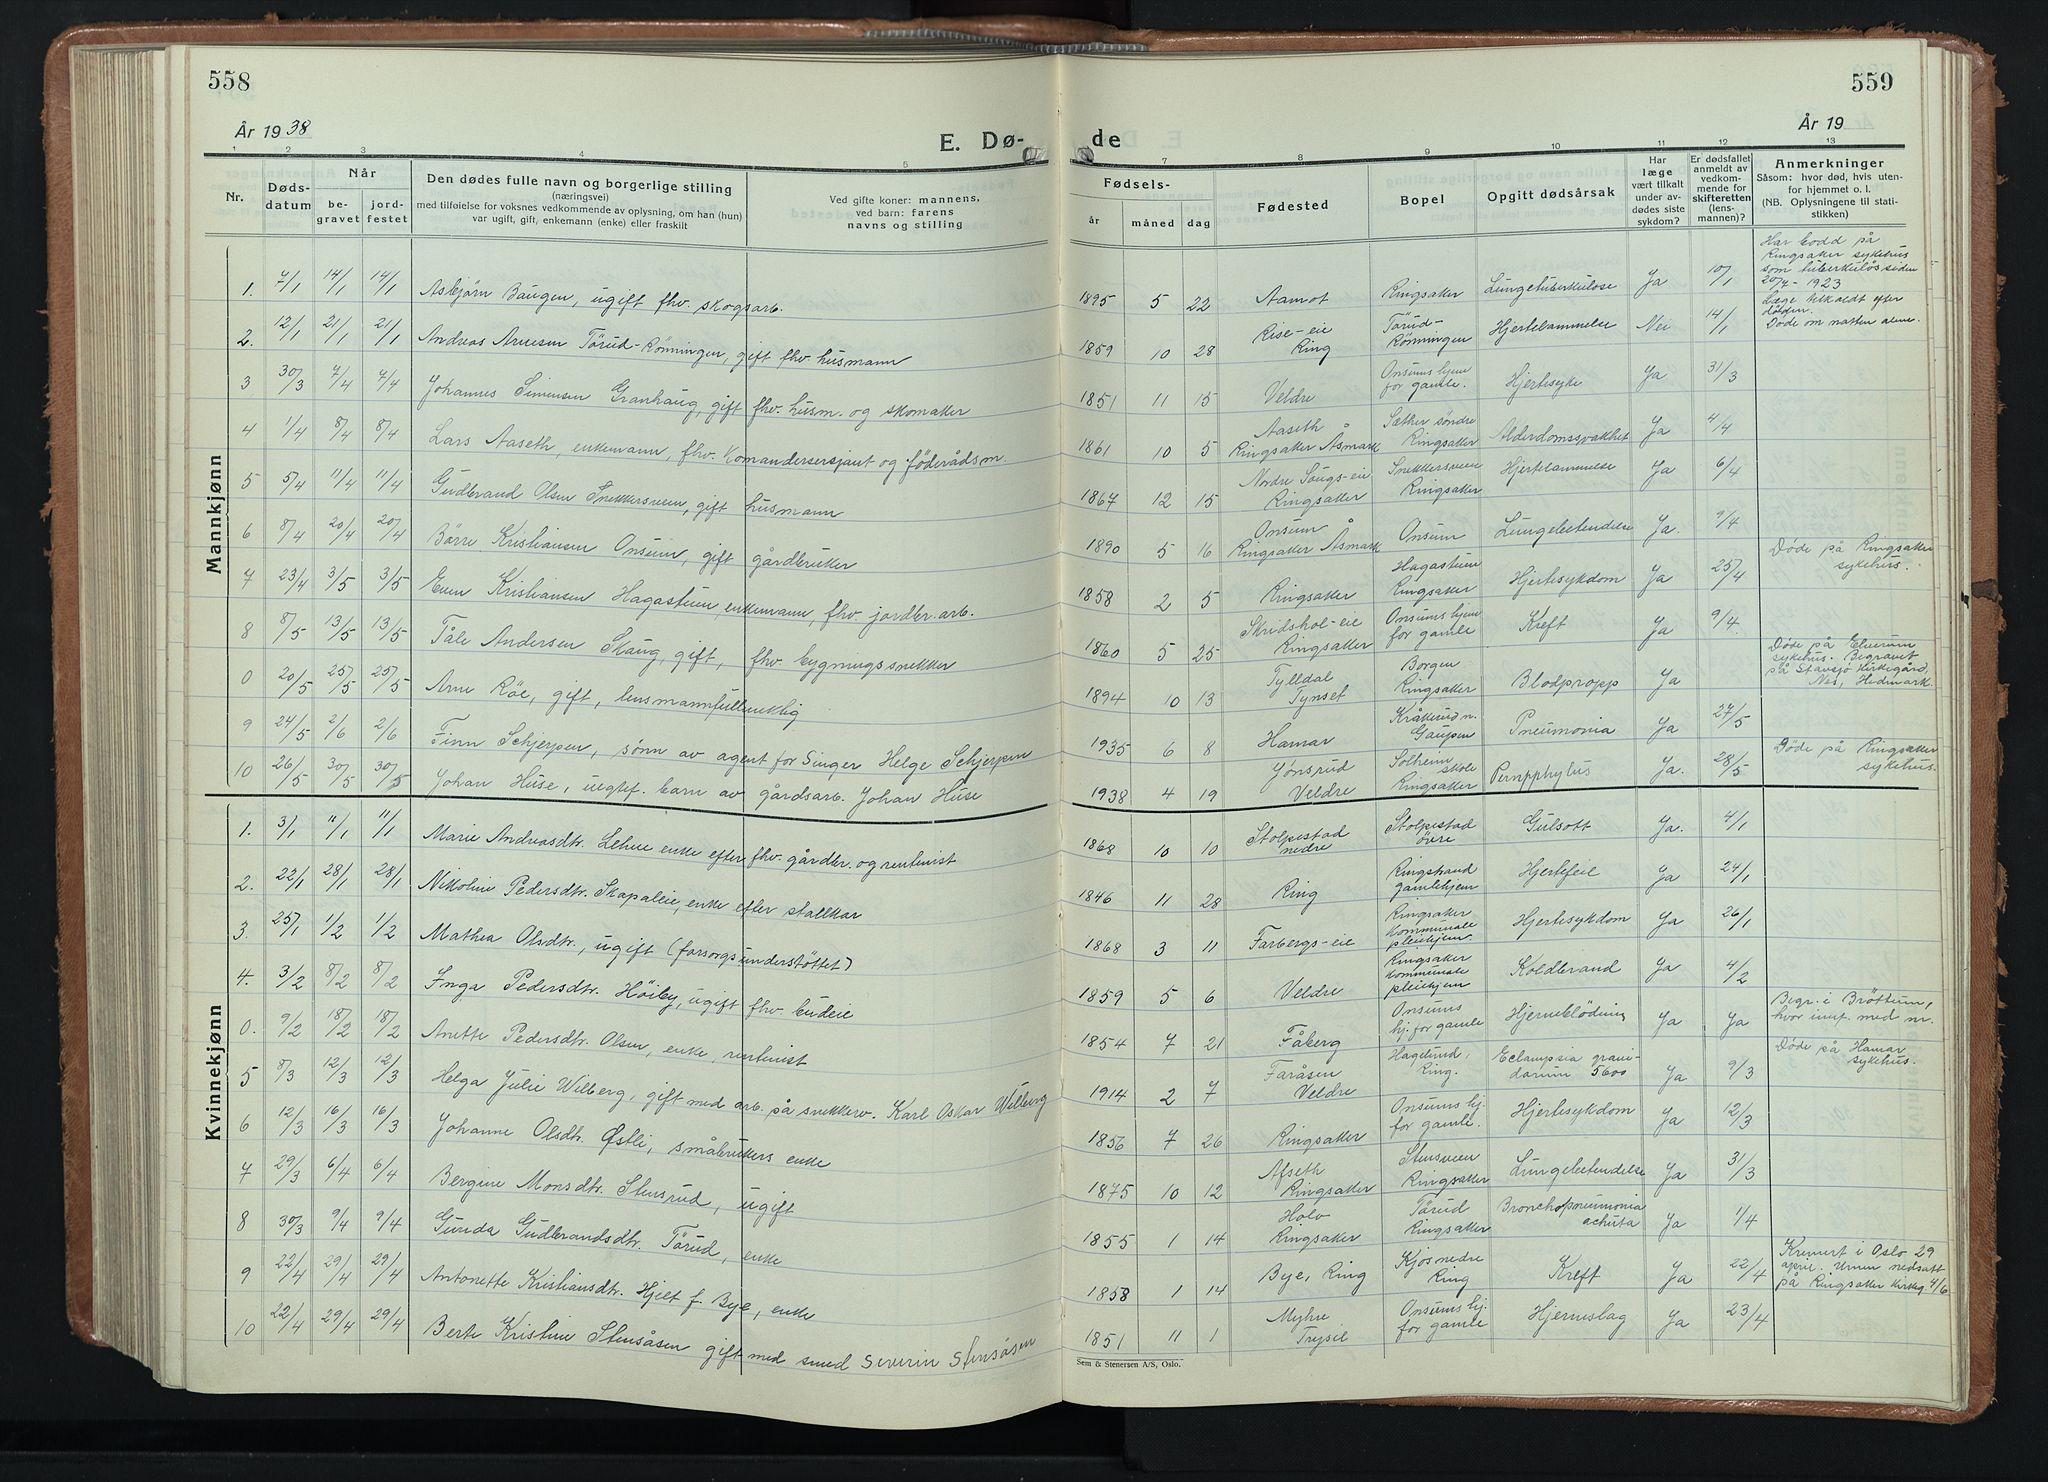 558
559
År 1938
E. Dø-
de
År 19
1 2 3 4 5 7 8 9 10 11 12 13
Nr.
Døds-
datum
Når
be-
gravet
jord-
festet
Den dødes fulle navn og borgerlige stilling
(næringsvei)
med tilføielse for voksnes vedkommende av oplysning, om han (hun)
var ugift, gift, enkemann (enke) eller fraskilt
Ved gifte koner: mannens,
ved barn: farens
navns og stilling
Fødsels-
år måned dag
Fødested
Bopel
Opgitt dødsårsak
Har
læge
vært tilkalt
under av-
dødes siste
sykdom?
Er dødsfallet
anmeldt av
vedkom-
mende for
skifteretten
(lens-
mannen)?
Anmerkninger
Såsom: hvor død, hvis uten-
for hjemmet o. l.
(NB. Oplysningene til stati-
stikken)
Mannkjønn
1. 7/1 14/1 14/1 Asbjørn Baugen, ugift fhv. skogsarb. 1895 5 22 Aamot Ringsaker Lungetuberkulose Ja 10/1 Har bodd på
Ringsaker sykehus
som tuberkuløs siden
20/7 - 1923
2. 12/1 21/1 21/1 Andreas Arnesen Törud-Rönningen, gift fhv. husmann 1859 10 28 Rise-eie
Ring Törud-
Rönningen Hjertelammelse Nei 14/1 Læge tilkaldt efter
döden.
Døde om natten alene.
3 30/3 7/4 7/4 Johannes Simensen Granhaug, gift fhv. husm. og skomaker 1851 11 15 Veldre Onsums hjem
for gamle. Hjertesyke Ja 31/3
4 1/4 8/4 8/4 Lars Aaseth, enkemann, fhv. Komandersersjant og föderådsm. 1861 10 5 Aaseth
Ringsaker Åsmark Sæther søndre
Ringsaker Alderdomssvakhet Ja 4/4
5 5/4 11/4 11/4 Gudbrand Olsen Snekkersveen, gift husmann 1867 12 15 Nordre Saugs-eie
Ringsaker Snekkersveen
Ringsaker Hjertelammelse Ja 6/4
6 8/4 20/4 20/4 Börre Kristiansen Onsum, gift gårdbruker 1890 5 16 Onsum
Ringsaker Åsmark Onsum Lungebetendelse Ja. 9/4
7 23/4 3/5 3/5 Even Kristiansen Hagasteen, enkemann, fhv. jordbr. arb. 1858 2 5 Ringsaker Hagasteen
Ringsaker Hjertesykdom Ja 25/4 Døde på Ringsaker
sykehus.
8 8/5 13/5 13/5 Tåle Andersen Skaug, gift, fhv. bygningssnekker 1860 5 25 Skredshol-eie
Ringsaker Onsums hjem
for gamle Kreft Ja 9/4
0 20/5 25/5 25/5 Arne Röe, gift, lensmannfullmektig 1894 10 13 Tylldal
Tynset Borgen
Ringsaker Blodpropp Ja Døde på Elverum
sykehus. Begravet
på Stavsjö Kirkegård,
Nes, Hedmark.
9 24/5 2/6 2/6 Finn Schjerpen, sønn av agent for Singer Helge Schjerpen 1935 6 8 Hamar Kråkerud n.
Gaupen Pneumonia Ja 27/5
10 26/5 30/5 30/5 Johan Huse, uegtef. barn av gårdsarb. Johan Huse 1938 4 19 Jønsrud
Veldre Solheim
skole
Ringsaker Pempphylus Ja. 28/5 Døde på Ringsaker
sykehus.
Kvinnekjønn
1. 3/1 11/1 11/1 Marie Andreasdtr. Lehne enke efter fhv. gårdbr. og rentenist 1868 10 10 Stolpestad
nedre Stolpestad
övre Gulsott Ja. 4/1
2. 22/1 28/1 28/1 Nikoline Pedersdtr. Skapaleie, enke efter stallkar 1846 11 28 Ring Ringstrand
gamlehjem Hjertefeil Ja 24/1
3. 25/1 1/2 1/2 Mathea Olsdtr., ugift (forsorgsunderstöttet) 1868 3 11 Farbergs-eie Ringsaker
Kommunale
pleiehjem. Hjertesykdom Ja 26/1
4. 3/2 8/2 8/2 Inga Pedersdtr. Höiby, ugift fhv. budeie 1859 5 6 Veldre Ringsaker
Kommunale
pleiehjem Koldbrand Ja 4/2
0. 9/2 18/2 18/2 Anette Pedersdtr. Olsen, enke, rentenist 1854 7 21 Fåberg Onsums
hj. for gamle Hjerneblödning Ja Ja Begr. i Bröttum,
hvor innf. med nr.
5 8/3 12/3 12/3 Helga Julie Wilberg, gift med arb. på snekkerv. Karl Oskar Wilberg 1914 2 7 Faråsen
Veldre Hagelund,
Ring. Eclampsia gravi-
darum 5600 Ja 9/3 Døde på Hamar
sykehus.
6 12/3 16/3 16/3 Johanne Olsdtr. Østli, småbrukers enke 1856 7 26 Ringsaker Onsums hj.
for gamle. Hjertesykdom Ja 12/3
7 29/3 6/4 6/4 Bergine Monsdtr. Stensrud, ugift 1875 10 12 Afseth
Ringsaker Stensveen
Ringsaker Lungebetendelse Ja 31/3
8 30/3 9/4 9/4 Gunda Gudbrandsdtr. Törud, enke 1855 1 14 Holo
Ringsaker Törud
Ringsaker Bronchopneumonia
achuta Ja 1/4
9 22/4 29/4 29/4 Antonette Kristiansdtr. Hjelt f. Bye, enke 1858 1 14 Bye, Ring Kjos nedre
Ring Kreft Ja 22/4 Kremert i Oslo 29
april. Urnen nedsatt
på Ringsaker Kirkeg. 4/6
10 22/4 29/4 29/4 Berte Kristine Stensåsen gift med smed Severin Stensåsen 1851 11 1 Myhre
Trysil Onsums hj.
for gamle Hjerneslag Ja 23/4
Sem & Stenersen A/S, Oslo.